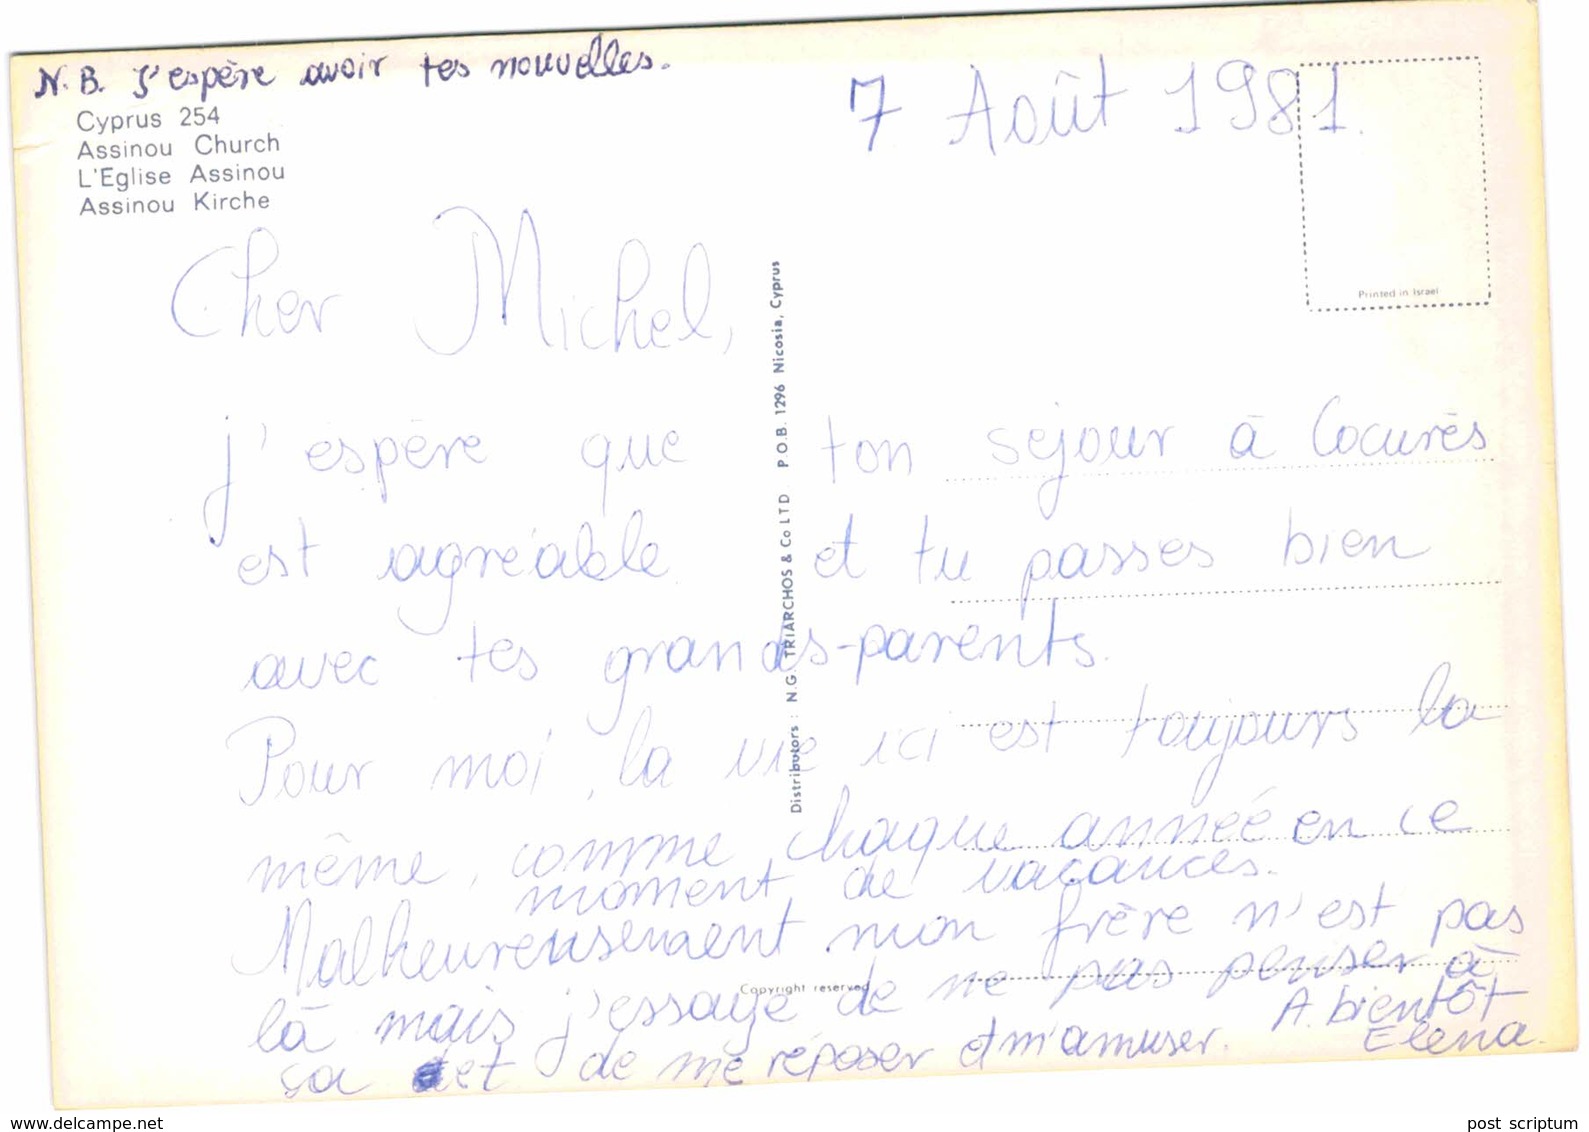 N.B. J'espère avoir tes nouvelles.
Cyprus 254
Assinou Church
L'Eglise Assinou
Assinou Kirche
7 Août 1981.
Printed in Israel
Cher Michel,
j'éspère que ton séjour à Cocurès
est agréable et tu passes bien
avec tes grands-parents.
Pour moi, la vie ici est toujours la
même, comme chaque année en ce
moment de vacances.
Malheureusement mon frère n'est pas
là mais j'essaye de ne pas penser à
ça et de me réposer et m'amuser.
A bientôt
Elena.
Distributors : N.G. TRIARCHOS & Co LTD P.O.B. 1296 Nicosia, Cyprus
Copyright reserved
www.delcampe.net
post scriptum